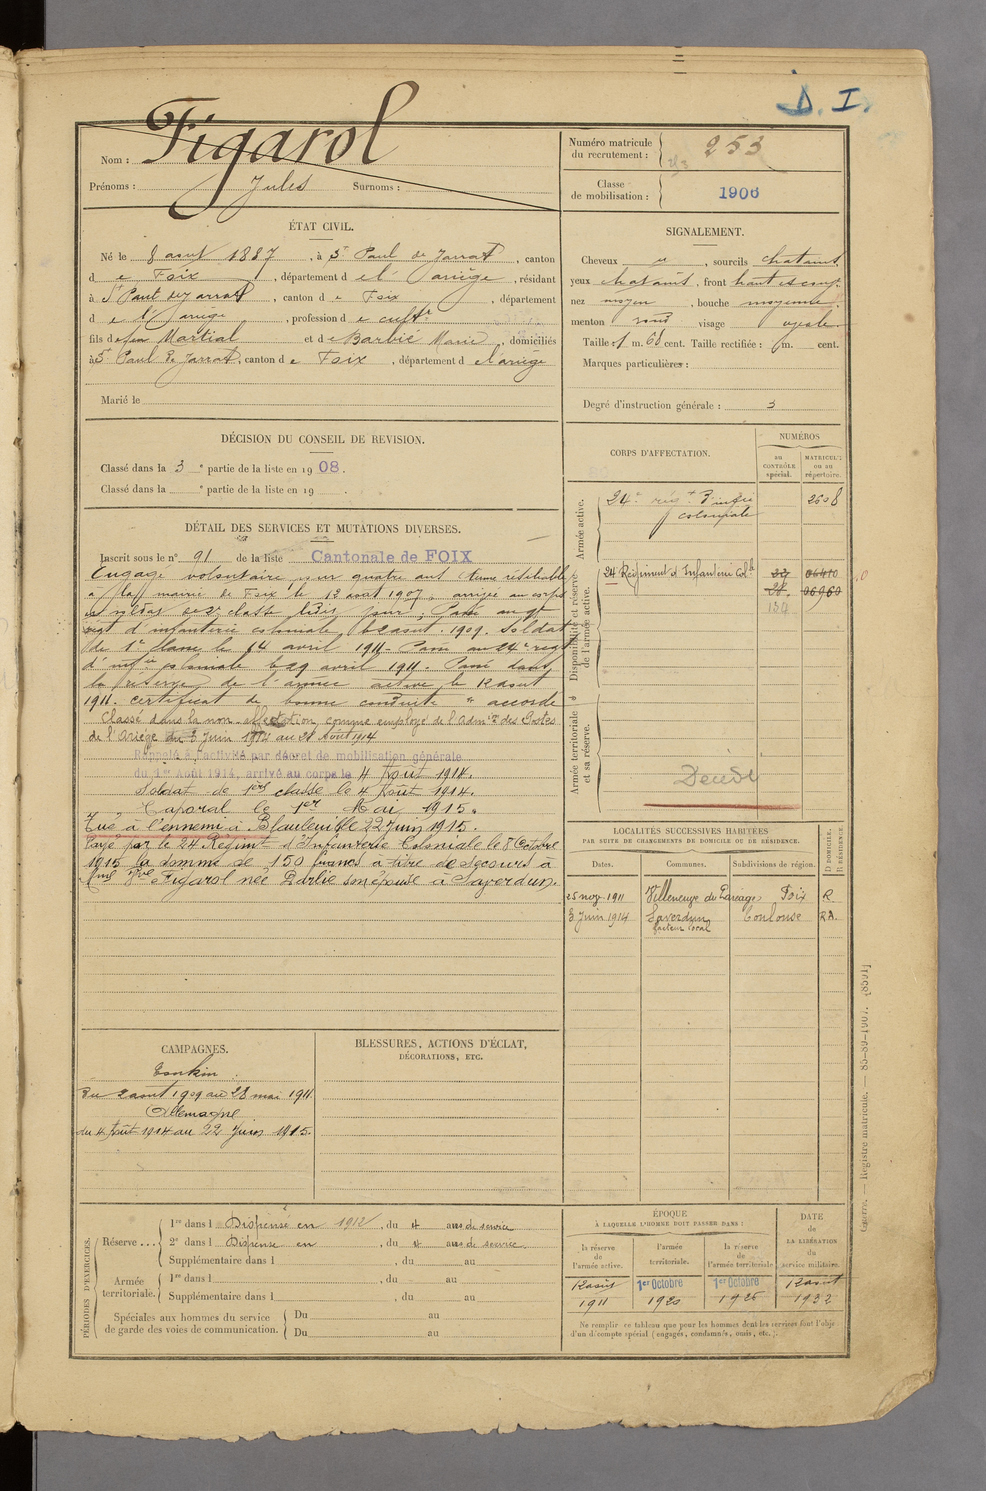 D. I.
Nom : Figarol
Prénoms : Jules Surnoms :
Numéro matricule
du recrutement : 253
Classe
de mobilisation : 1906
ÉTAT CIVIL.
Né le 8 aout 1887, à St Paul de Jarrat, canton
d e Foix, département d e l'Ariège, résidant
à St Paul de Jarrat, canton d e Foix, département
d e l'Ariège, profession d e cultr
fils de feu Martial et de Barbié Marie, domiciliés
à St Paul de Jarrat, canton d e Foix, département d e l'ariège
Marié le
SIGNALEMENT.
Cheveux , sourcils chatains,
yeux chatains, front haut et
nez moyen, bouche moyenne,
menton rond visage ovale
Taille : 1 m. 68 cent. Taille rectifiée : m. cent.
Marques particulières :
Degré d'instruction générale : 3
DÉCISION DU CONSEIL DE REVISION.
Classé dans la 3e partie de la liste en 1908.
Classé dans la e partie de la liste en 19 .
CORPS D'AFFECTATION.
NUMÉROS
au
CONTRÔLE
spécial.
MATRICULE
ou au
répertoire.
Armée active.
24e régt d'infie
coloniale
2608
Disponibilité et réserve
de l'armée active.
24 Régiment d'Infanterie Cole
33 06410
28. 06960
134
Armée territoriale
et sa réserve.
Décédé
DÉTAIL DES SERVICES ET MUTATIONS DIVERSES.
Inscrit sous le n° 91 de la liste Cantonale de FOIX
Engagé volontaire pour quatre ans
à la mairie de Foix le 12 aout 1907, arrivé au corps
et soldat de 2e classe ledit jour; Passé au 9e
régt d'infanterie coloniale le 2 aout 1909. Soldat
de 1e classe le 14 avril 1911. Passé au 24e régt
d'infie coloniale le 29 avril 1911. Passé dans
la réserve de l'armée active le 12 aout
1911. certificat de bonne conduite "accordé"
Classé dans la non affectation, comme employé de l'admon des Postes
de l'Ariège du 3 Juin 1914 au 28 Août 1914
Rappelé à l'activité par décret de mobilisation générale
du 1er Août 1914, arrivé au corps le 4 Août 1914.
Soldat de 1ère classe le 4 Août 1914.
Caporal le 1er Mai 1915.
Tué à l'ennemi à 22 Juin 1915.
Payé par le 24 Régimt d'Infanterie Coloniale le 8 Octobre
1915 la somme de 150 francs à titre de secours à
Mme Vve Figarol née son épouse à Saverdun.
LOCALITÉS SUCCESSIVES HABITÉES
PAR SUITE DE CHANGEMENTS DE DOMICILE OU DE RÉSIDENCE.
Dates. Communes. Subdivisions de région. D. DOMICILE. R. RÉSIDENCE.
25 nov. 1911 Villeneuve du Pareage Foix R
3 Juin 1914 Saverdun Toulouse RA.
facteur local
CAMPAGNES.
Tonkin
Du 2 août 1909 au 28 mai 1911.
Allemagne
du 4 Août 1914 au 22 Juin 1915.
BLESSURES, ACTIONS D'ÉCLAT,
DÉCORATIONS, ETC.
PÉRIODES D'EXERCICES.
Réserve ...
1re dans l Dispensé en 1912, du et au ans de service
2e dans l Dispensé en , du et au ans de service
Supplémentaire dans l , du au
Armée
territoriale.
1re dans l , du au
Supplémentaire dans l , du au
Spéciales aux hommes du service
de garde des voies de communication.
Du au
Du au
ÉPOQUE
À LAQUELLE L'HOMME DOIT PASSER DANS :
la réserve
de l'armée active.
l'armée
territoriale.
la réserve
de l'armée territoriale.
DATE
de
LA LIBÉRATION
du
service militaire.
12 août 1er Octobre 1er Octobre 12 août
1911 1920 1926 1932
Ne remplir ce tableau que pour les hommes dont les services font l'objet
d'un décompte spécial (engagés, condamnés, omis, etc.).
Guerre. — Registre matricule. — 85-89-1907. [8501]